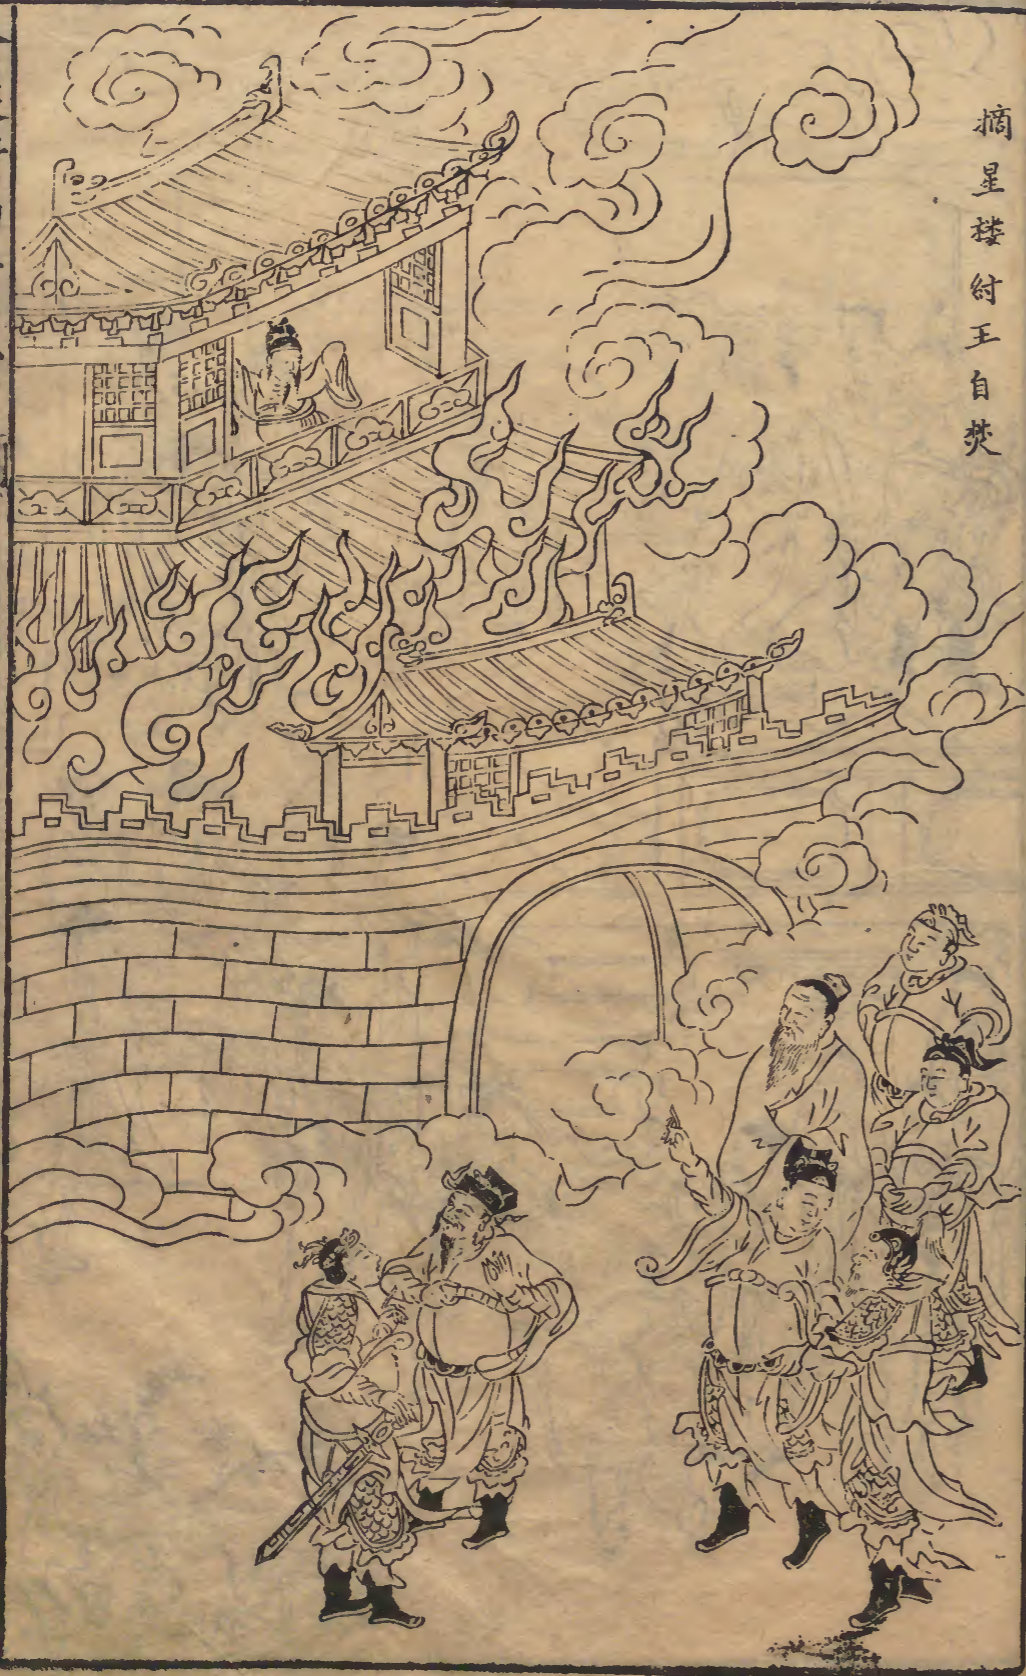 摘星楼紂王自焚